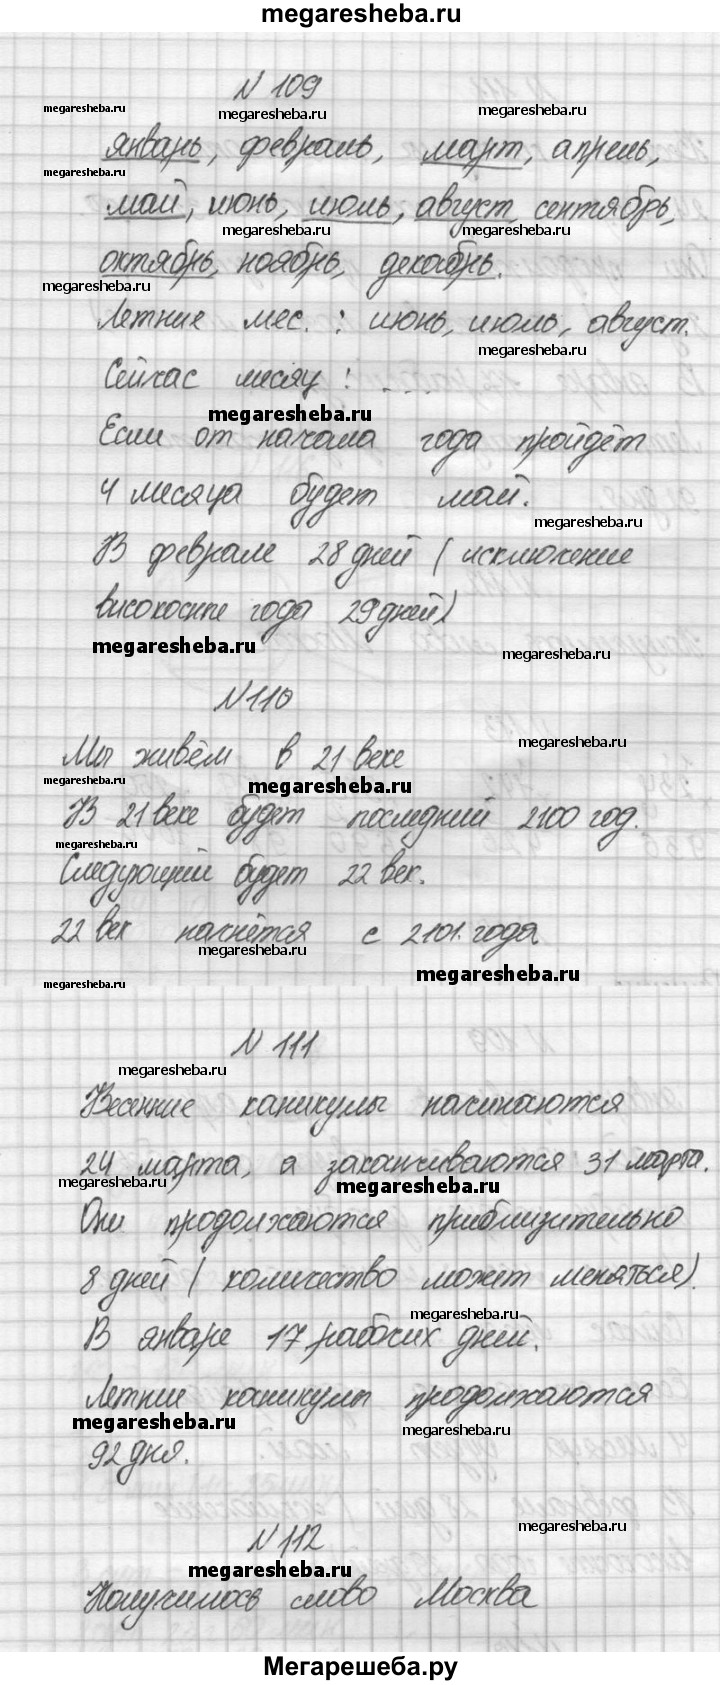 megaresheba.ru
N 109
megaresheba.ru megaresheba.ru megaresheba.ru
январь, февраль, март, апрель,
май, июнь, июль, август, сентябрь,
megaresheba.ru megaresheba.ru
октябрь, ноябрь, декабрь.
megaresheba.ru
Летние мес. : июнь, июль, август.
megaresheba.ru
Сейчас месяц : ....
megaresheba.ru
Если от начала года пройдёт
4 месяца будет май.
megaresheba.ru
В феврале 28 дней (исключение
високосные года 29 дней)
megaresheba.ru megaresheba.ru
N 110
megaresheba.ru
Мы живём в 21 веке
megaresheba.ru megaresheba.ru
В 21 веке будет последний 2100 год.
megaresheba.ru
Следующий будет 22 век.
22 век начнётся с 2101. года
megaresheba.ru megaresheba.ru
megaresheba.ru
N 111
megaresheba.ru
Весенние каникулы начинаются
24 марта, а заканчиваются 31 марта.
megaresheba.ru megaresheba.ru
Они продолжаются приблизительно
8 дней (количество может меняться).
megaresheba.ru
В январе 17 рабочих дней.
Летние каникулы продолжаются
megaresheba.ru megaresheba.ru
92 дня.
N 112
megaresheba.ru
megaresheba.ru
Получилось слово Москва
Мегарешеба.ру